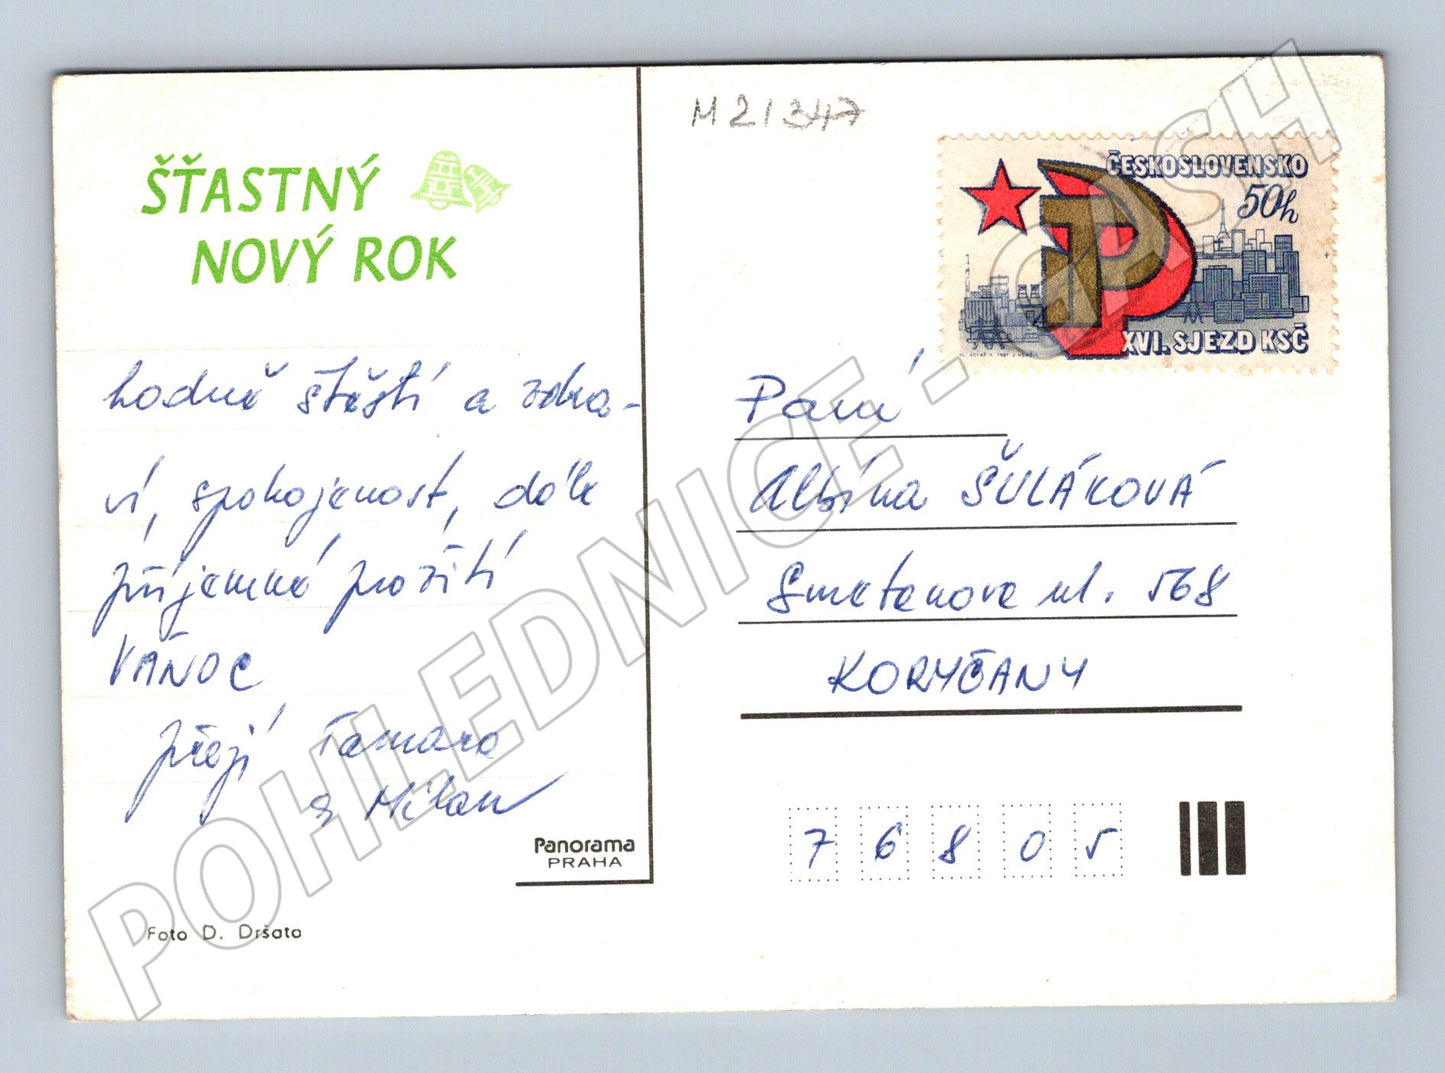 M21347
ŠŤASTNÝ
NOVÝ ROK
ČESKOSLOVENSKO
50h
XVI. SJEZD KSČ
hodně štěstí a zdra-
ví, spokojenost, dále
příjemné prožití
VÁNOC
přejí Tamara
a Milan
Paní
Albína ŠULÁKOVÁ
Smetanova ul. 568
KORYČANY
76805
Panorama
PRAHA
Foto D. Dršata
POHLEDNICE - CASH